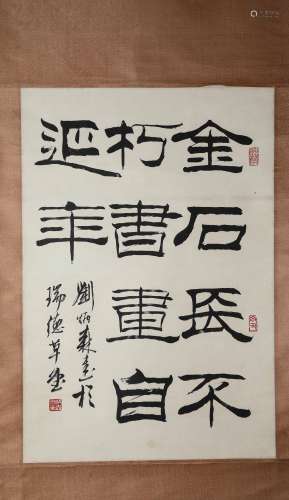 金石長不
朽書畫自
延年
劉炳森書於
瑞德草堂